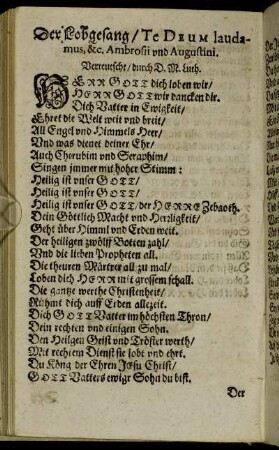 Der Lobgesang / Te Deum lauda-
mus, &c. Ambrosii vnd Augustini.
Verteutscht / durch D. M. Luth.
HERR GOTT dich loben wir /
HERR GOTT wir dancken dir.
Dich Vatter in Ewigkeit /
Ehret die Welt weit vnd breit /
All Engel vnd Himmels Heer /
Vnd was dienet deiner Ehr /
Auch Cherubim vnd Seraphim /
Singen jmmer mit hoher Stimm:
Heilig ist vnser GOTT /
Heilig ist vnser GOTT /
Heilig ist vnser GOTT / der HERRE Zebaoth.
Dein Göttlich Macht vnd Herzligkeit /
Geht über Himml vnd Erden weit.
Der heiligen zwölff Botten zahl /
Vnd die lieben Propheten all.
Die theuren Märtrer all zu mal /
Loben dich HERR mit grossem schall.
Die gantze werthe Christenheit /
Rühmt dich auff Erden allezeit.
Dich GOTT Vatter im höchsten Thron /
Dein rechten vnd einigen Sohn.
Den Heilgen Geist vnd Tröster werth /
Mit rechtem Dienst sie lobt vnd ehrt.
Du Köng der Ehren Jesu Christ /
GOTT Vatters ewigr Sohn du bist.
Der